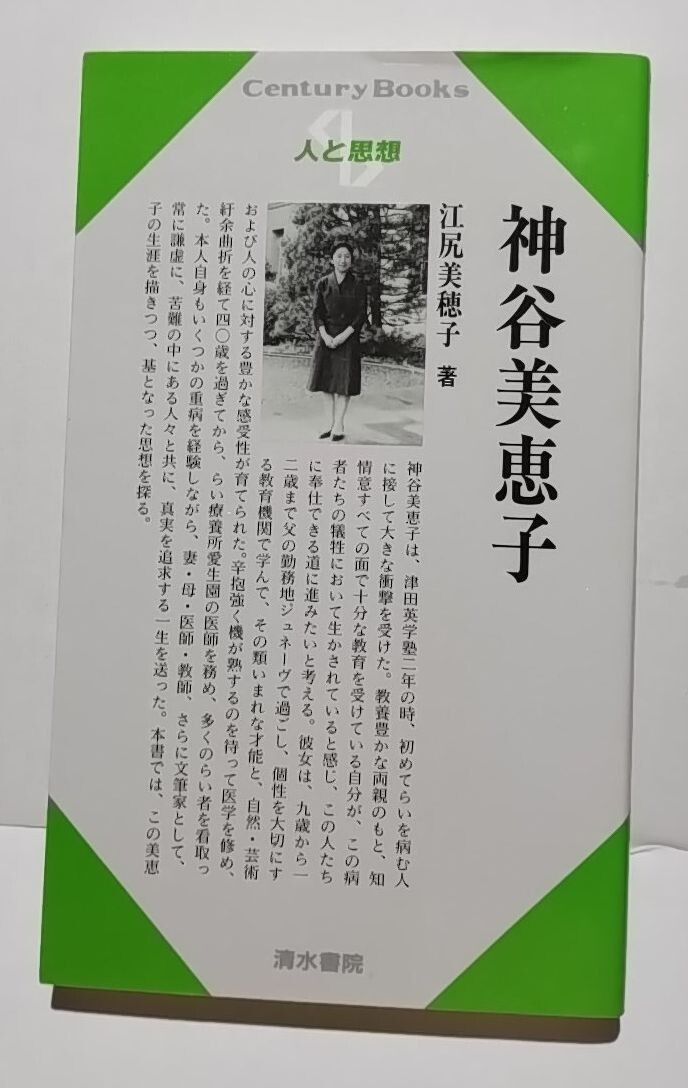 Century Books
人と思想
神谷美恵子
江尻美穂子 著
神谷美恵子は、津田英学塾二年の時、初めてらいを病む人
に接して大きな衝撃を受けた。教養豊かな両親のもと、知
情意すべての面で十分な教育を受けている自分が、この病
者たちの犠牲において生かされていると感じ、この人たち
に奉仕できる道に進みたいと考える。彼女は、九歳から一
二歳まで父の勤務地ジュネーヴで過ごし、個性を大切にす
る教育機関で学んで、その類いまれな才能と、自然・芸術
および人の心に対する豊かな感受性が育てられた。辛抱強く機が熟するのを待って医学を修め、
紆余曲折を経て四〇歳を過ぎてから、らい療養所愛生園の医師を務め、多くのらい者を看取っ
た。本人自身もいくつかの重病を経験しながら、妻・母・医師・教師、さらに文筆家として、
常に謙虚に、苦難の中にある人々と共に、真実を追求する一生を送った。本書では、この美恵
子の生涯を描きつつ、基となった思想を探る。
清水書院